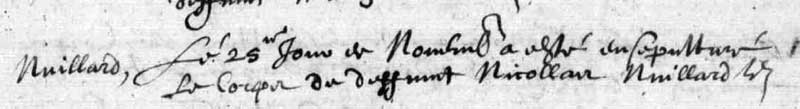 Nuillard, Le 25me Jour de Novembr a esté ensepulturé
Le Corps de deffunt Nicollas Nuillard